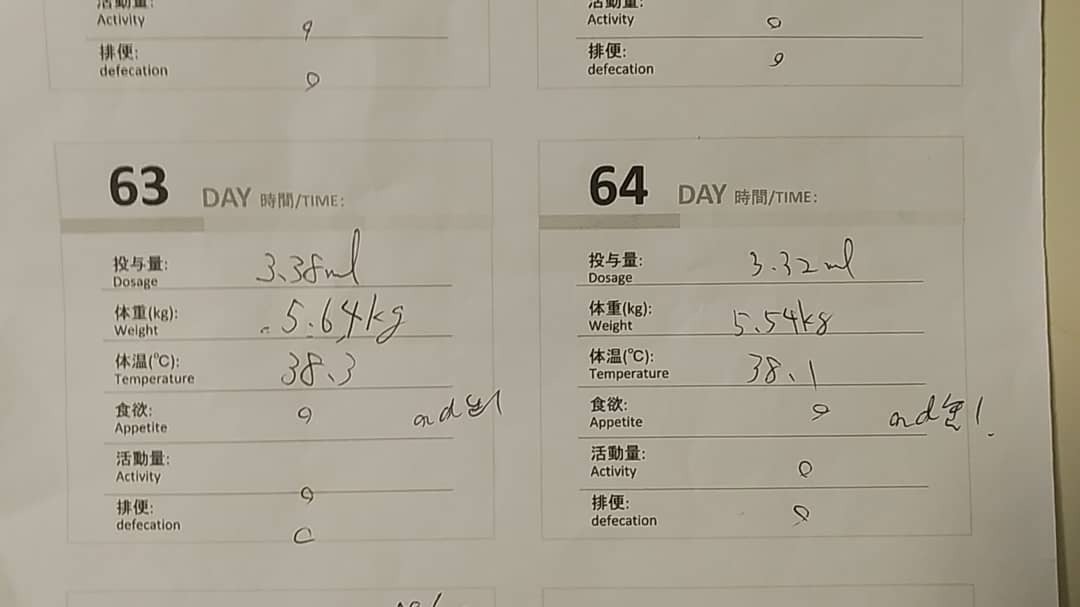 活動量:
Activity
排便:
defecation
活動量:
Activity
排便:
defecation
63 DAY 時間/TIME:
投与量:
Dosage
3.38ml
体重(kg):
Weight
5.64kg
体温(℃):
Temperature
38.3
食欲:
Appetite
活動量:
Activity
排便:
defecation
64 DAY 時間/TIME:
投与量:
Dosage
3.32ml
体重(kg):
Weight
5.54kg
体温(℃):
Temperature
38.1
食欲:
Appetite
活動量:
Activity
排便:
defecation